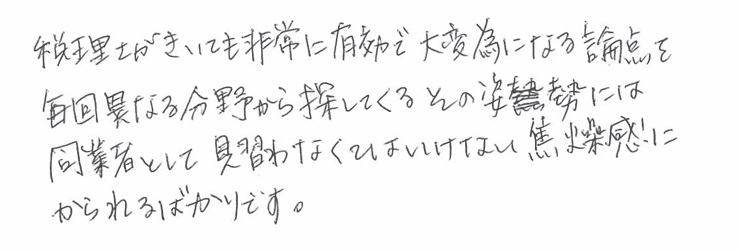 税理士がきいても非常に有効で大変為になる論点を
毎回異なる分野から探してくるその姿勢には
同業者として見習わなくてはいけない焦燥感に
かられるばかりです。